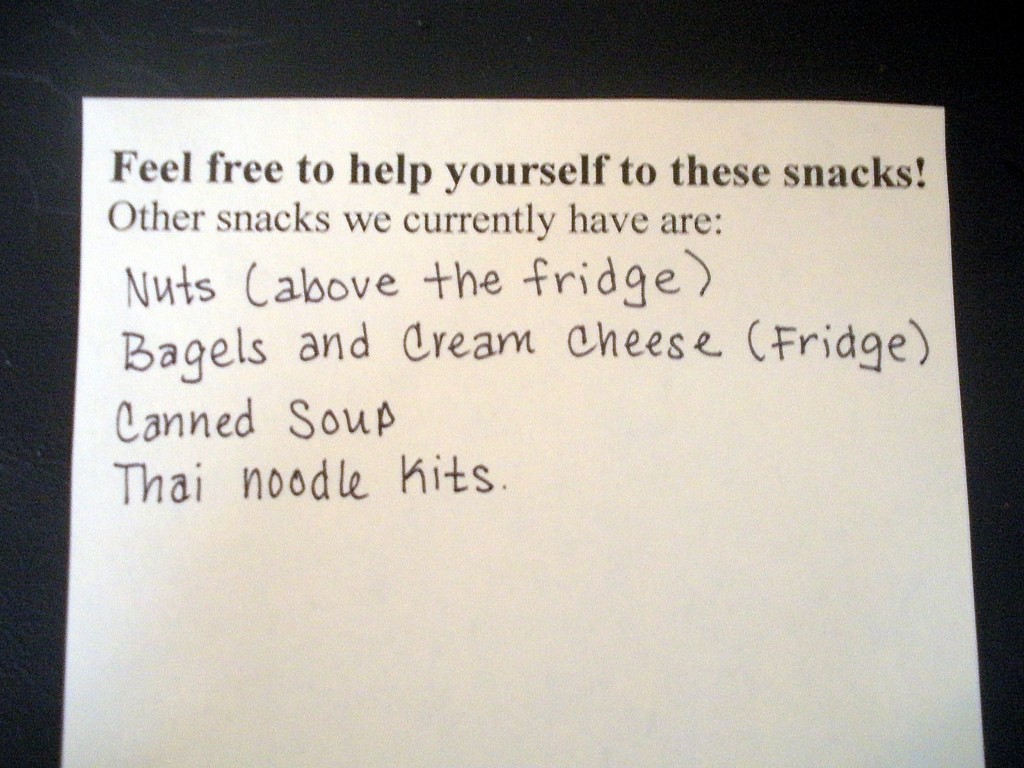 Feel free to help yourself to these snacks!
Other snacks we currently have are:
Nuts (above the fridge)
Bagels and Cream Cheese (Fridge)
Canned Soup
Thai noodle Kits.